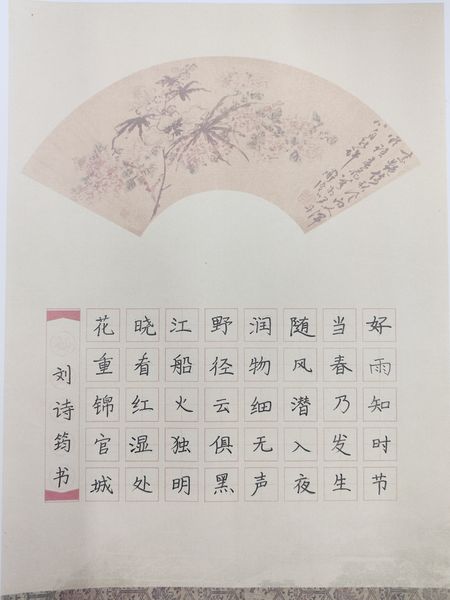 好雨知时节
当春乃发生
随风潜入夜
润物细无声
野径云俱黑
江船火独明
晓看红湿处
花重锦官城
刘诗筠书